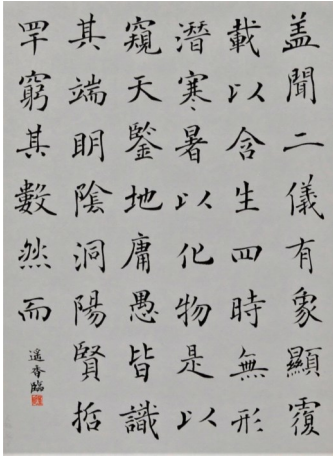 盖聞二儀有象顯覆
載以含生四時無形
潛寒暑以化物是以
窺天鑒地庸愚皆識
其端眀陰洞陽賢哲
罕窮其數然而
遙香臨